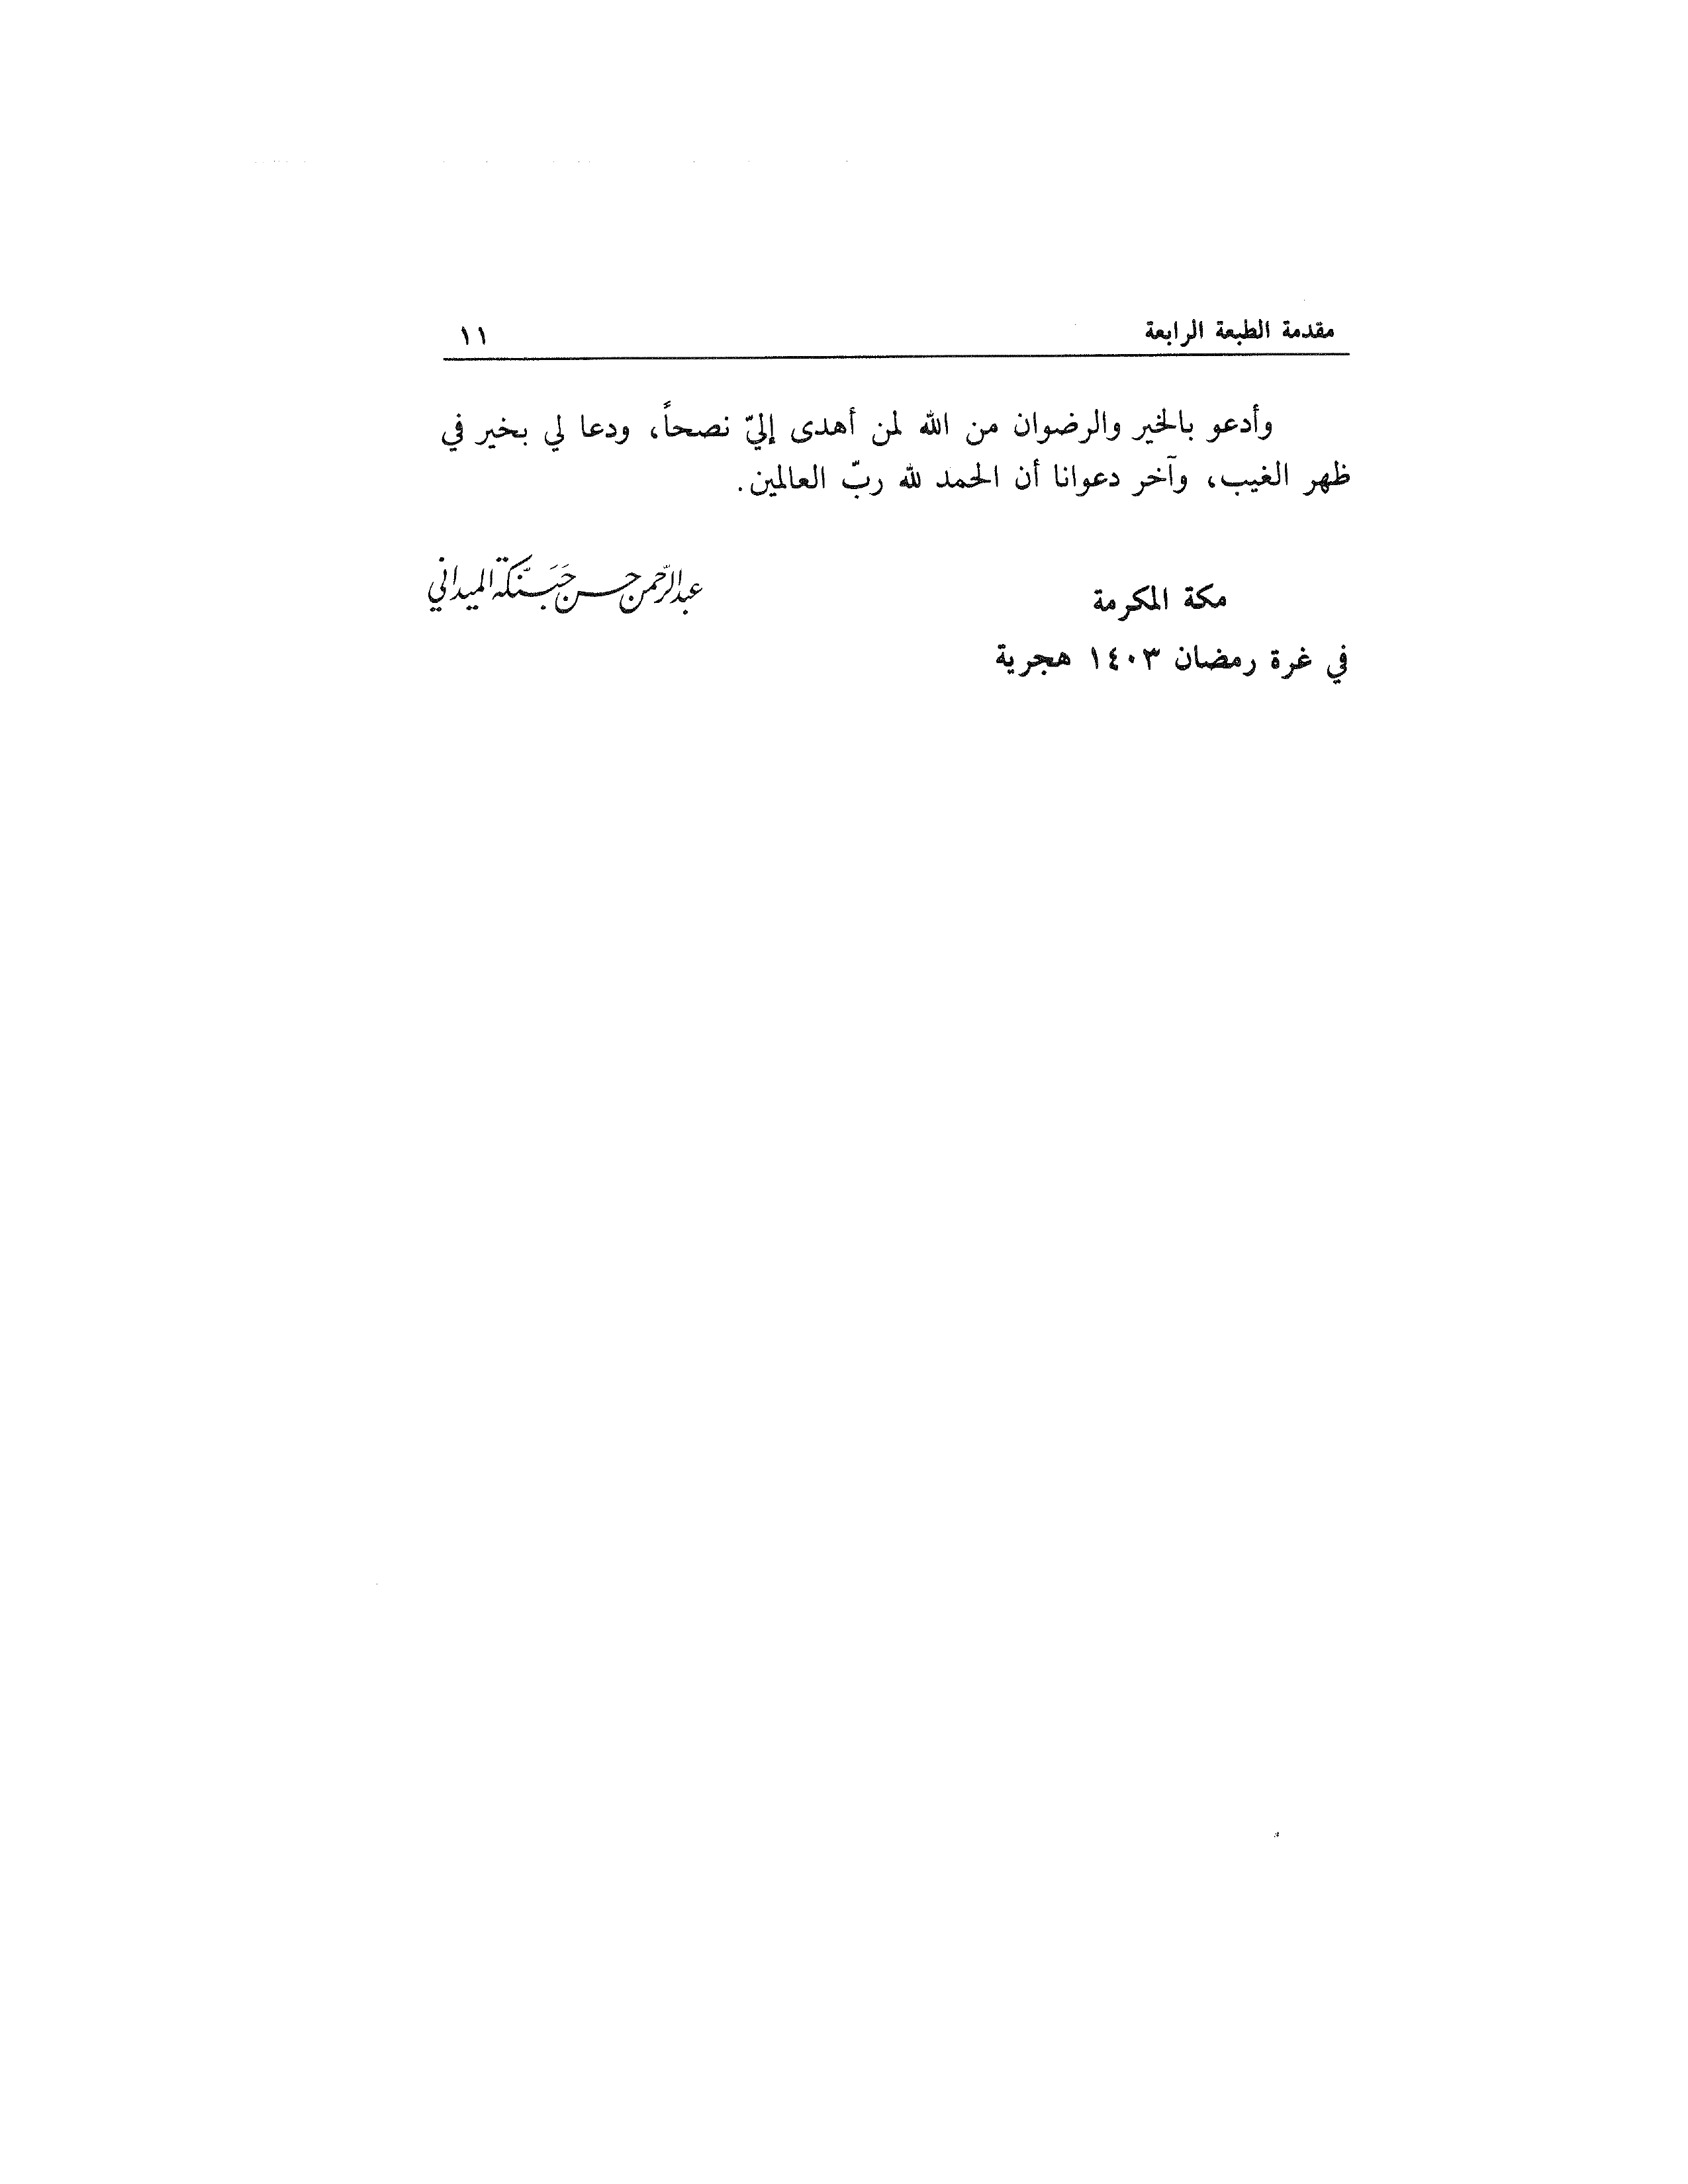 مقدمة الطبعة الرابعة ١١
وأدعو بالخير والرضوان من الله لمن أهدى إليّ نصحاً، ودعا لي بخير في
ظهر الغيب، وآخر دعوانا أن الحمد لله ربّ العالمين.
مكة المكرمة
عبدالرّحمن حسن حَبَنَّكَة الميداني
في غرة رمضان ١٤٠٣ هجرية